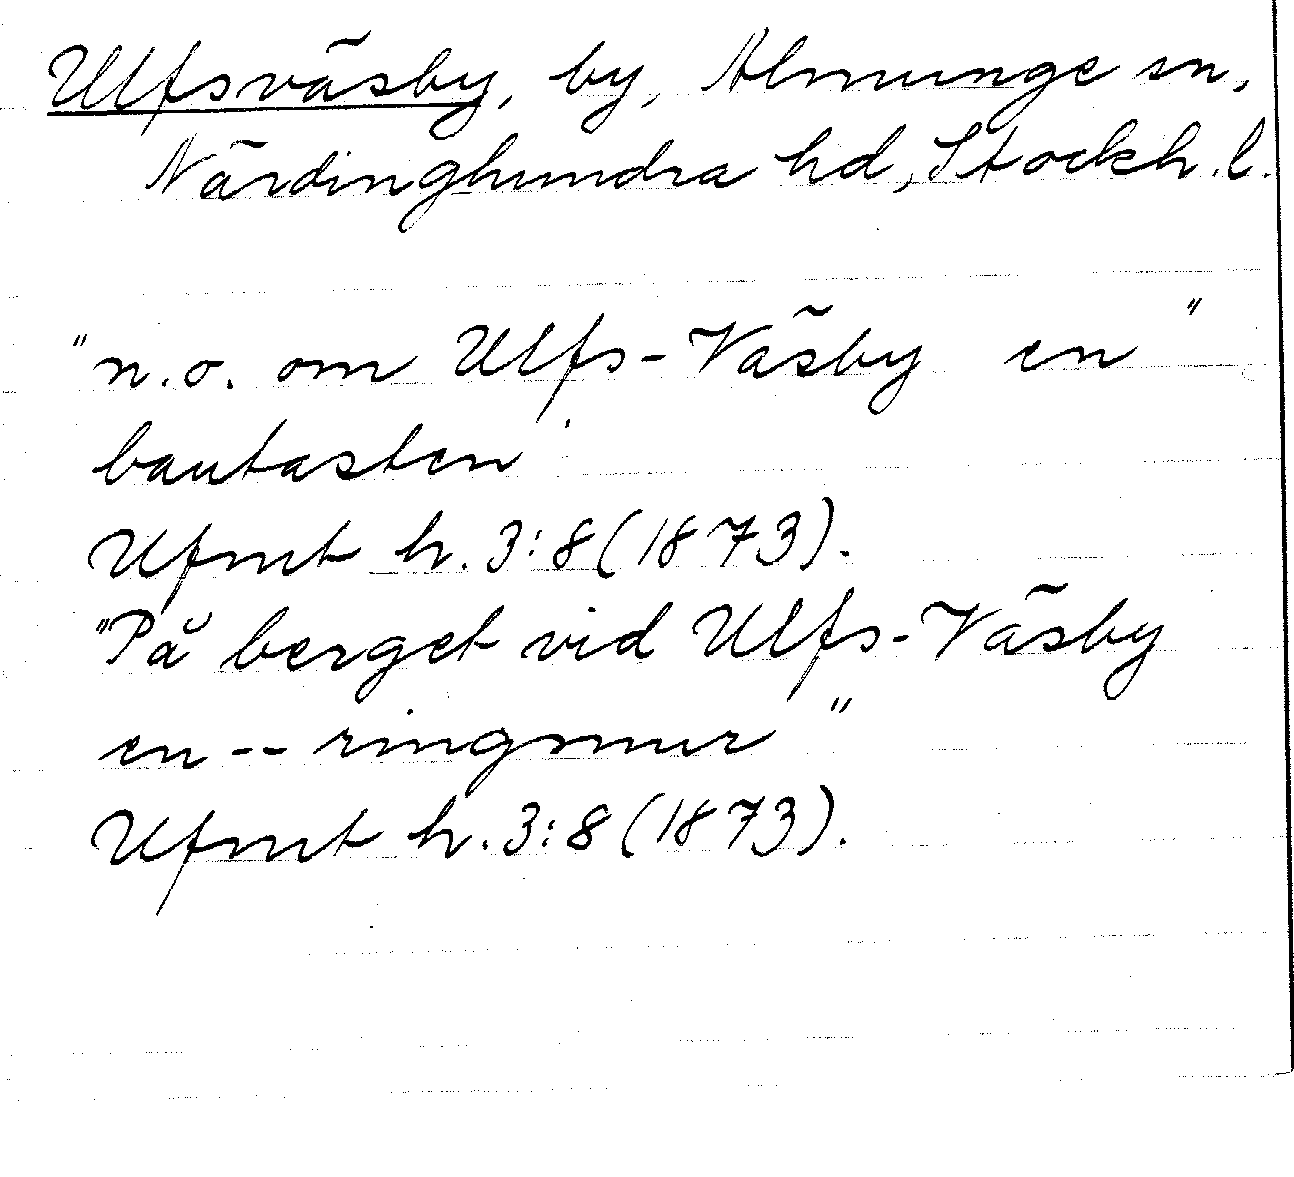 Ulfsväsby, by, Almunge sn,
Närdinghundra hd, Stockh.l.
"n.o. om Ulfs-Väsby en "
bautasten
Ufmt h.3:8(1873).
"På berget vid Ulfs-Väsby
en -- ringmur "
Ufmt h.3:8(1873).